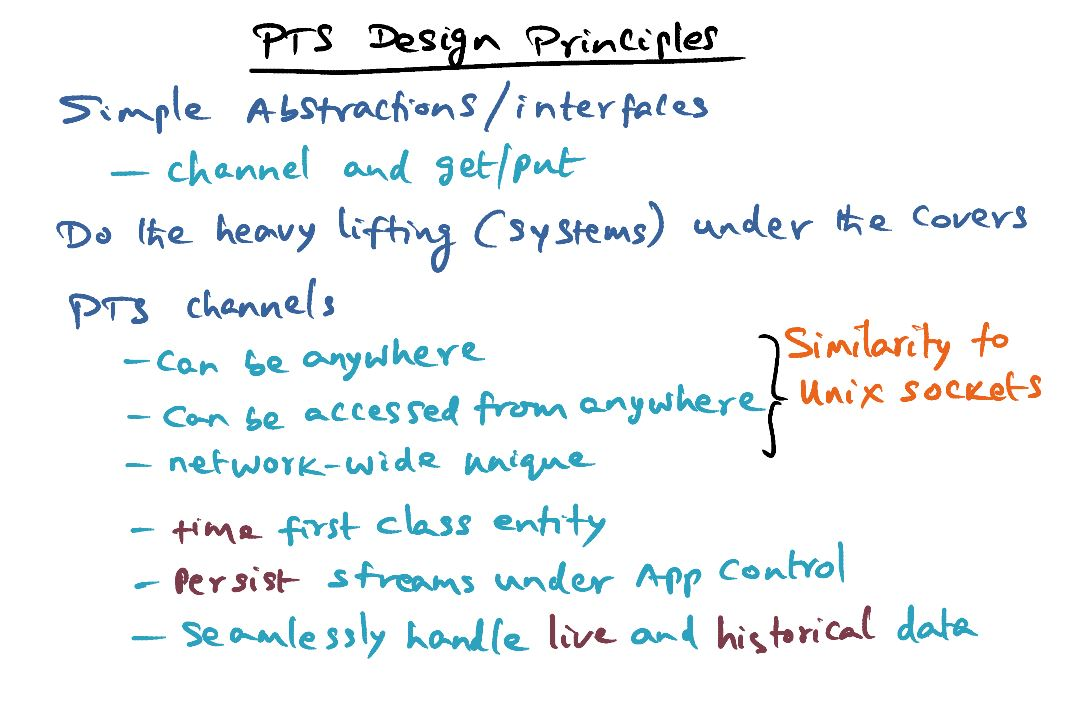 PTS Design Principles
Simple Abstractions/interfaces
- channel and get/put
Do the heavy lifting (systems) under the covers
PTS channels
- Can be anywhere
- Can be accessed from anywhere
- network-wide unique
Similarity to
Unix sockets
- time first class entity
- Persist streams under App control
- Seamlessly handle live and historical data